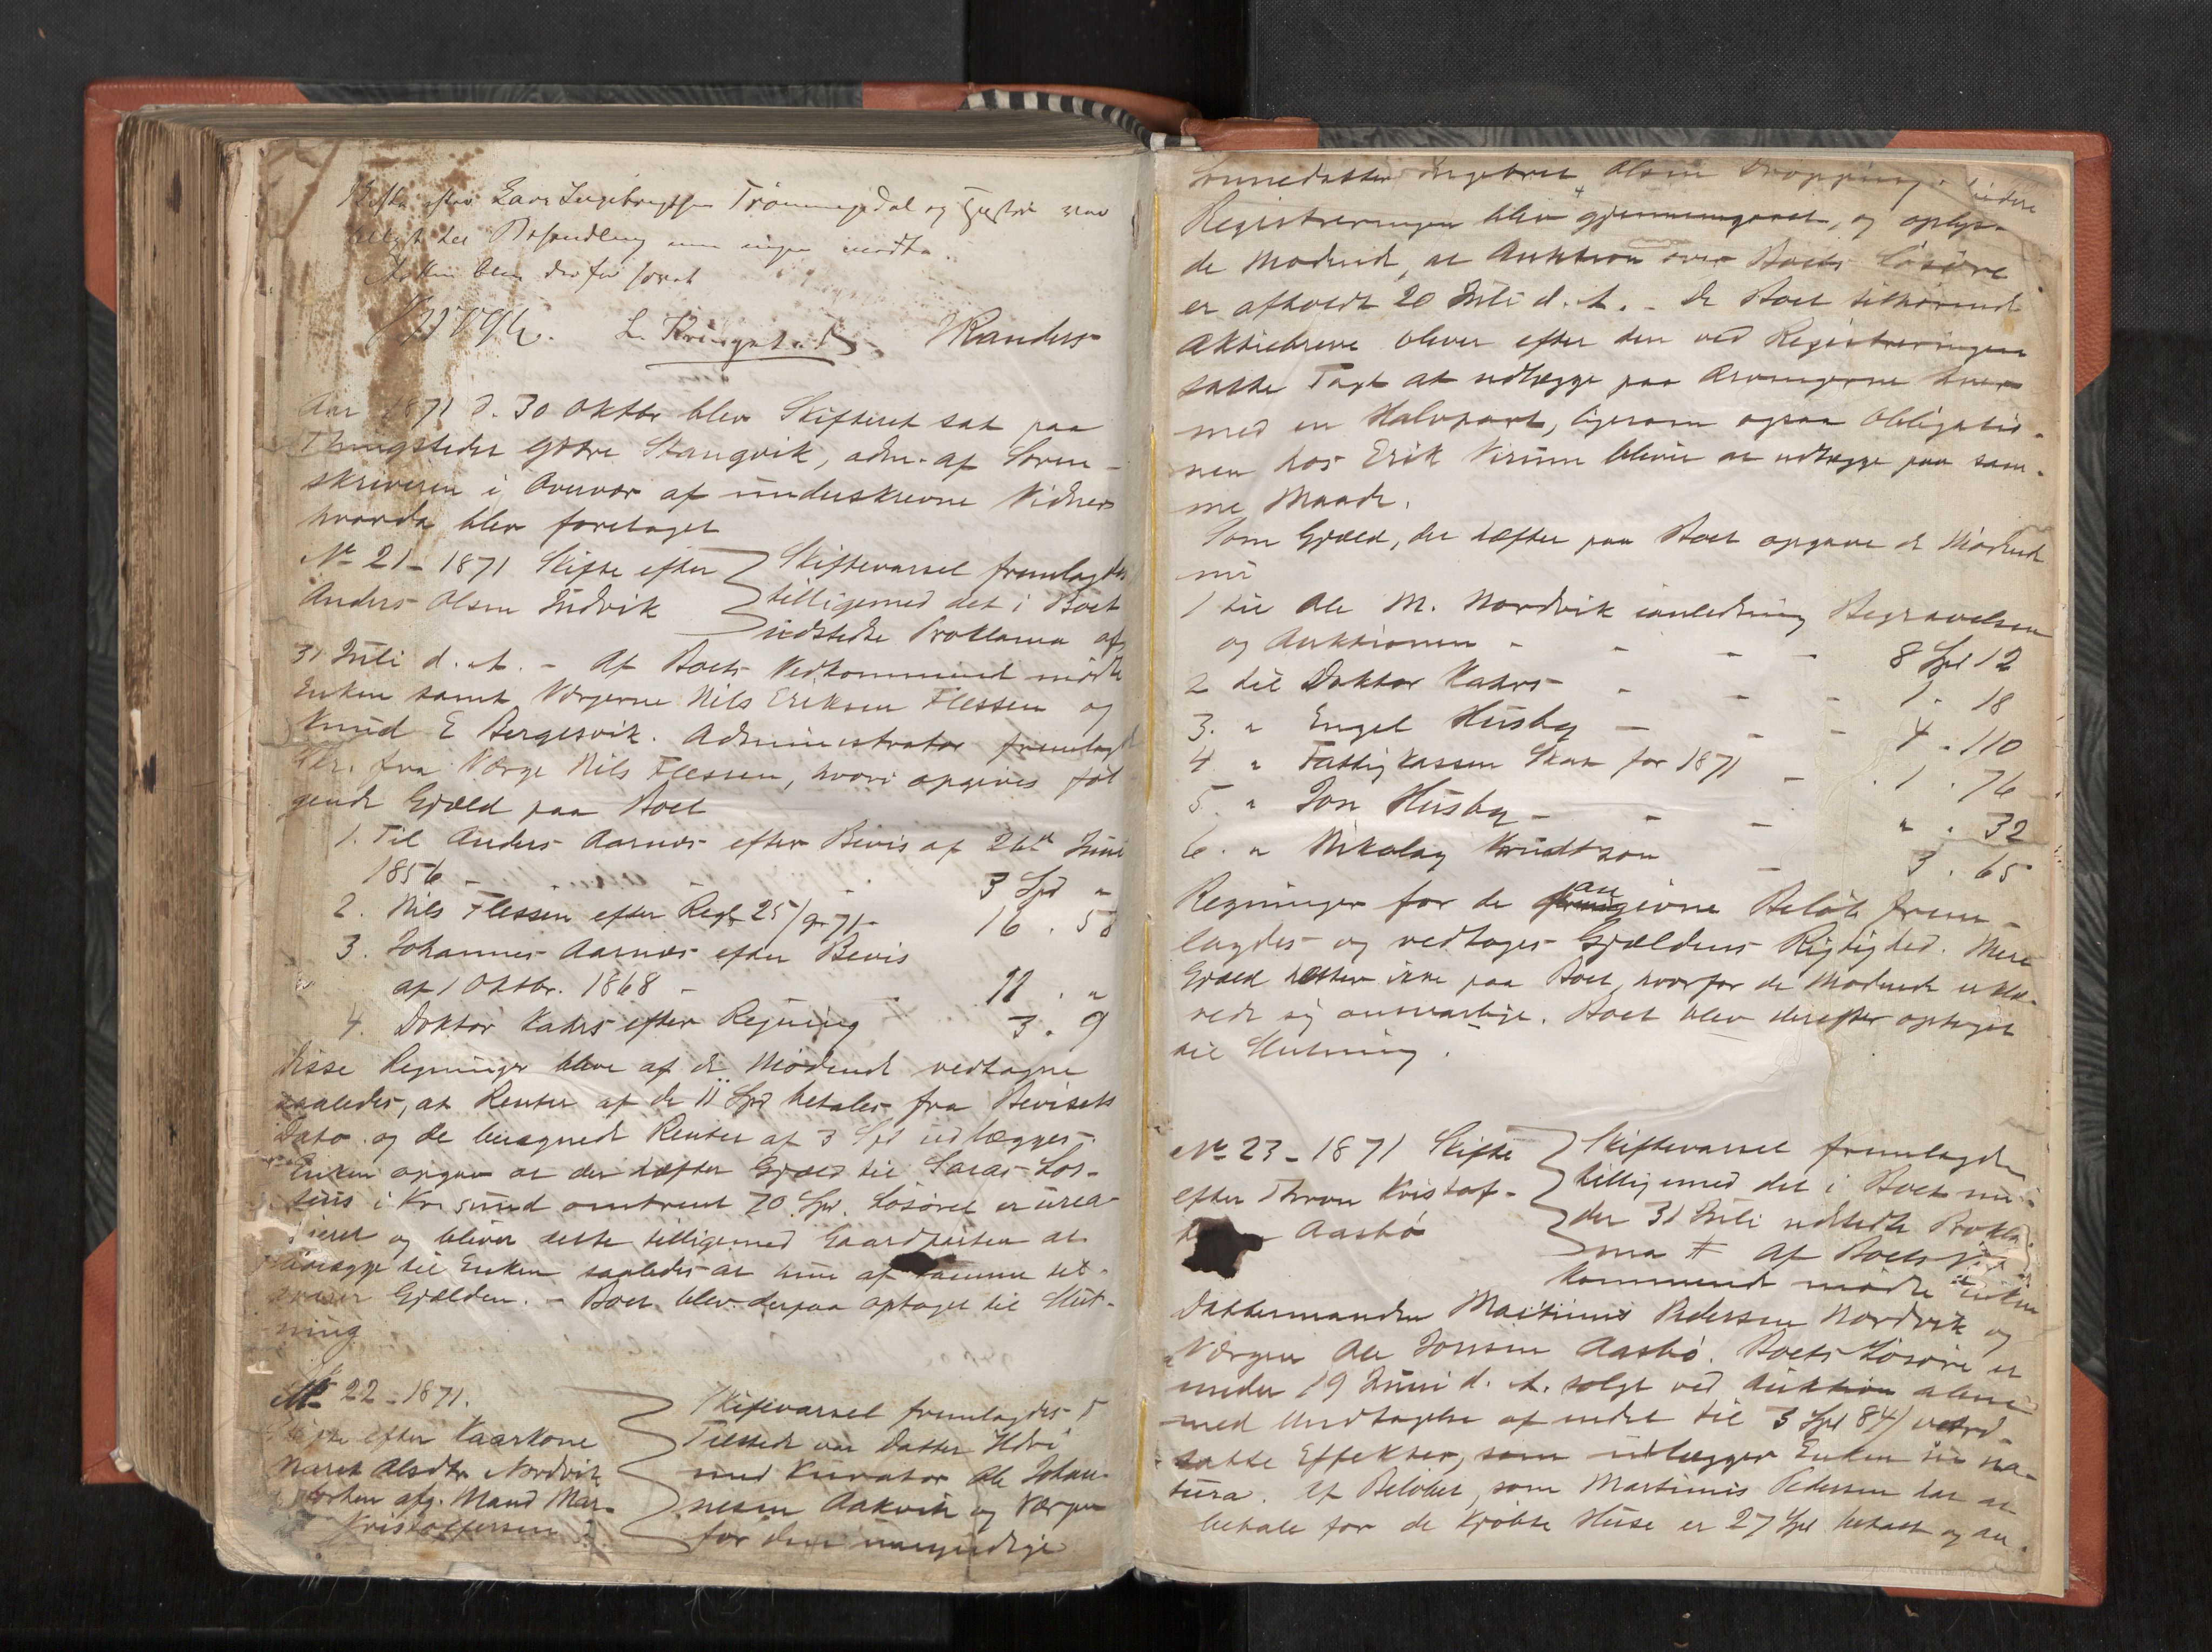 Skifte efter Lars Ingebrigtsen Trönningsdal og Hustru var
berammet til Behandling men ingen mødte.
Skiftet blev derfor hævet
L. Kringstad. Randers
Aar 1871 d. 30 Oktbr blev Skifteret sat paa
Thingstedet gotre Stangvik, adm. af Soren-
skriveren i Overvær af underskrevne Vidner
hvorda blev foretaget
No 21 - 1871 Skifte efter
Anders Olsen Indvik
Skiftevarsel fremlagdes
tilligemed det i Boet
udstedte Proklama af
31 Juli d. A. - Af Boets Vedkommende mødte
Enken samt Værgerne Nils Eriksen Flessen og
Knud E Bergesvik. Administrator fremlagde
Skr. fra Værge Nils Flessen, hvori opgives føl
gende Gjæld paa Boet
1. Til Anders Aarnes efter Bevis af 26de Juni
1856 - - - 3 Spd "
2. Nils Flessen efter Regl 25/9 71 - 16 . 58
3. Johannes Aarnes efter Bevis
af 1 Oktbr. 1868 - - 11 . "
4. Doktor Kahrs efter Regning 3 . 9
Disse Regninger bleve af de Mødende vedtagne
saaledes, at Renter af de 11 Spd betales fra Bevisets
Dato og de beregnede Renter af 3 Spd udlægges.
Enken opgav at der hæfter Gjæld til Saras Los-
sius i Kr.sund omtrent 70 Spd. Løsøret er urea-
liseret og bliver dette tilligemed Gaardparten at
udlægge til Enken saaledes at hun af samme til-
svarer Gjælden. - Boet blev derpaa optaget til Slut-
ning
No 22 - 1871.
Skifte efter Kaarkone
Maret Olsdtr Nordvik
og hendes afg. Mand Mar-
Kristoffersen
Skiftevarsel fremlagdes
Tilstede var Datter
med Kurator Ole Johan-
nesen Aakvik og Værgen
for den umyndige
Sønnedatter Ingebret Olsen Dropping.
Registreringen blev gjennemgaaet, og oplys-
de Mødende, at Auktion over Boets Løsøre
er afholdt 20 Juli d. A. - De Boet tilhørende
Aktiebreve bliver efter den ved Registreringen
satte Taxt at udlægge paa Arvingerne hver
med en Halvpart, ligesom ogsaa Obligatio-
nen hos Erik Virum bliver at udlægge paa sam-
me Maade.
Som Gjæld, der hæfter paa Boet opgave de Mødende
nu
1 til Ole M. Nordvik ianledning Begravelsen
og Auktionen - - - - 8 Spd 12
2 til Doktor Kahrs - - - - 1 - 18
3. " Engel Husby - - - 4 . 110
4 " Fattigkassen Skat for 1871 - 1 . 76
5 " Jon Husby - - - " . 32
6. " Nikolay Knudtzon - 3 . 65
Regninger for de angivne Beløb frem-
lagdes og vedtoges Gjældens Rigtighed. Mere
Gjæld hefter ikke paa Boet, hvorfor de Mødende erklæ-
rede sig ansvarlige. Boet blev derefter optaget
til Slutning.
No 23 - 1871 Skifte
efter Thron Kristof-
Aasbø
Skiftevarsel fremlagdes
tilligemed det i Boet un-
der 31 Juli udstedte Prokla
ma # Af Boets
kommende mødte Enken
Dattermanden Martinus Pedersen Nordvik og
Værgen Ole Jonsen Aasbø. Boets Løsøre er
under 19 Juni d. A. solgt ved Auktion alene
med Undtagelse af endel til 3 Spd 84 / værd-
satte Effekter, som udlægges Enken in na-
tura. Af Beløbet, som Martinus Pedersen har at
betale for de kjøbte Huse er 27 Spd betalt og an-